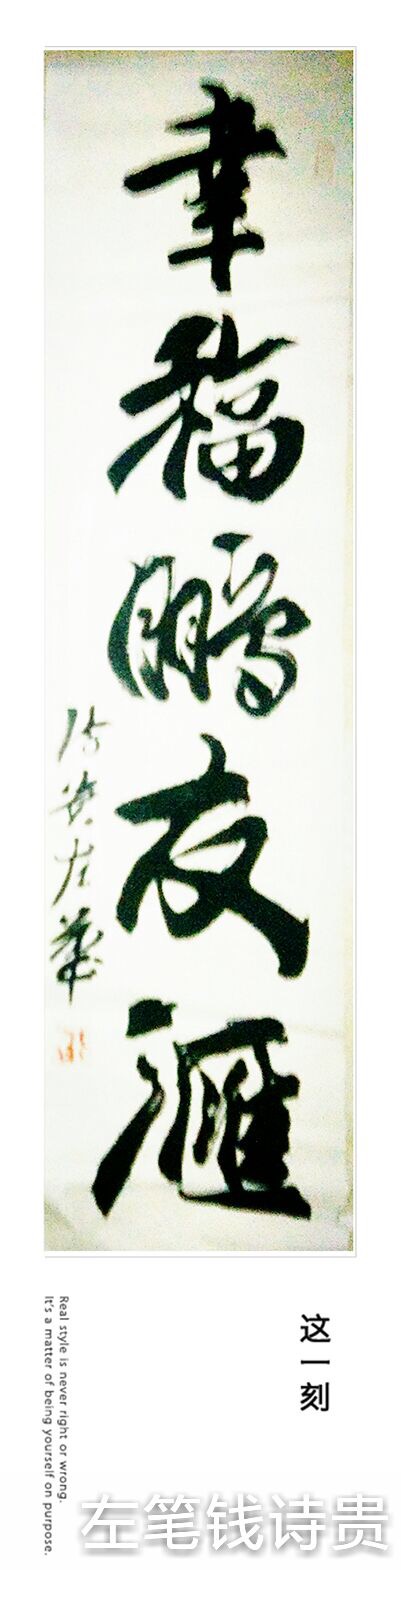 幸福鹏友滙
左華
这一刻
Real style is never right or wrong.
It's a matter of being yourself on purpose.
左笔钱诗贵